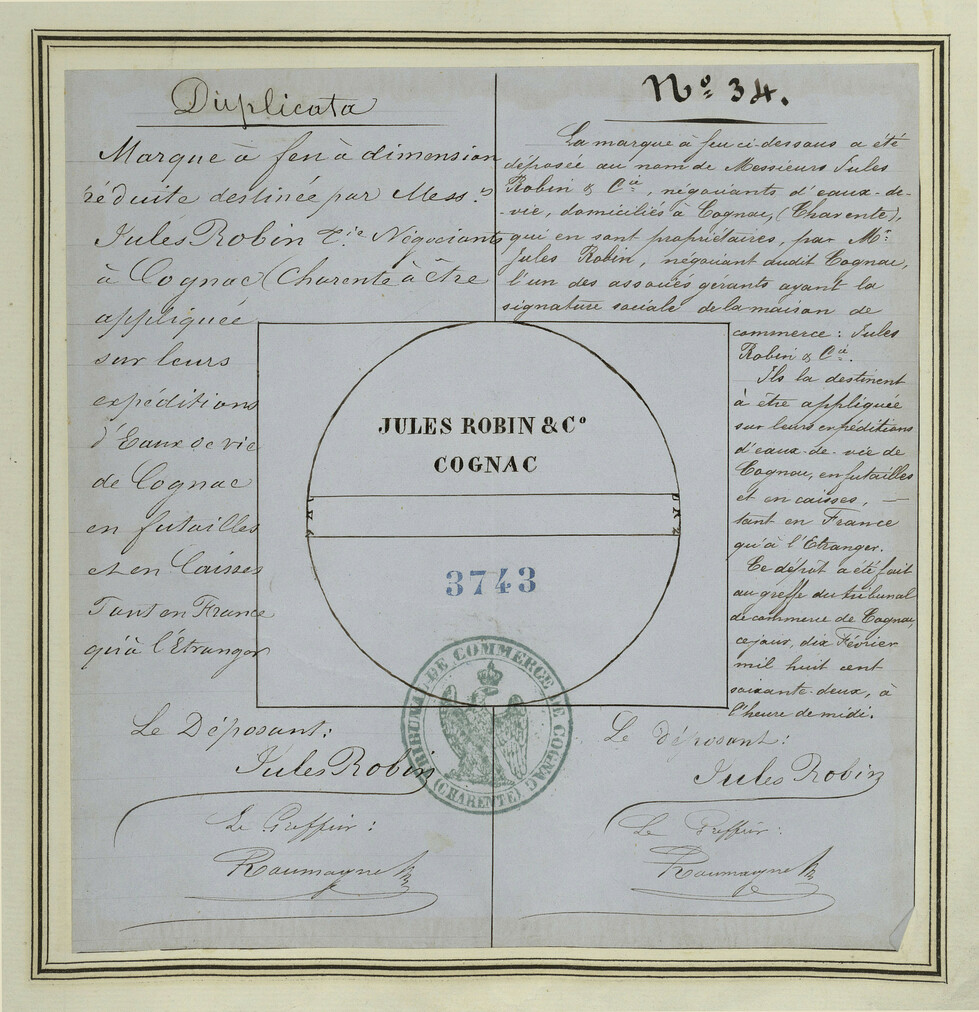 Duplicata
Marque à feu à dimension
réduite destinée par Mess.rs
Jules Robin & Cie Négociants
à Cognac (Charente à être
appliquée
sur leurs
expéditions
d'Eaux de vie
de Cognac
en futailles
et en Caisses
Tant en France
qu'à l'Etranger
Le Déposant:
Jules Robin
Le Greffier:
Roumayne
No. 34.
La marque à feu ci-dessous a été
déposée au nom de Messieurs Jules
Robin & Cie, négociants d'eaux-de-
-vie, domiciliés à Cognac, (Charente),
qui en sont propriétaires, par Mr.
Jules Robin, négociant dudit Cognac,
l'un des associés gérants ayant la
signature sociale de la maison de
commerce: Jules
Robin & Cie.
Ils la destinent
à être appliquée
sur leurs expéditions
d'eaux-de-vie de
Cognac, en futailles
et en caisses, —
tant en France
qu'à l'Etranger.
Ce dépôt a été fait
au greffe du tribunal
de commerce de Cognac,
ce jour, dix Février
mil huit cent
soixante-deux, à
l'heure de midi.
Le déposant:
Jules Robin
Le Greffier:
Roumayne
JULES ROBIN & Co
COGNAC
3743
TRIBUNAL DE COMMERCE DE COGNAC
(CHARENTE)